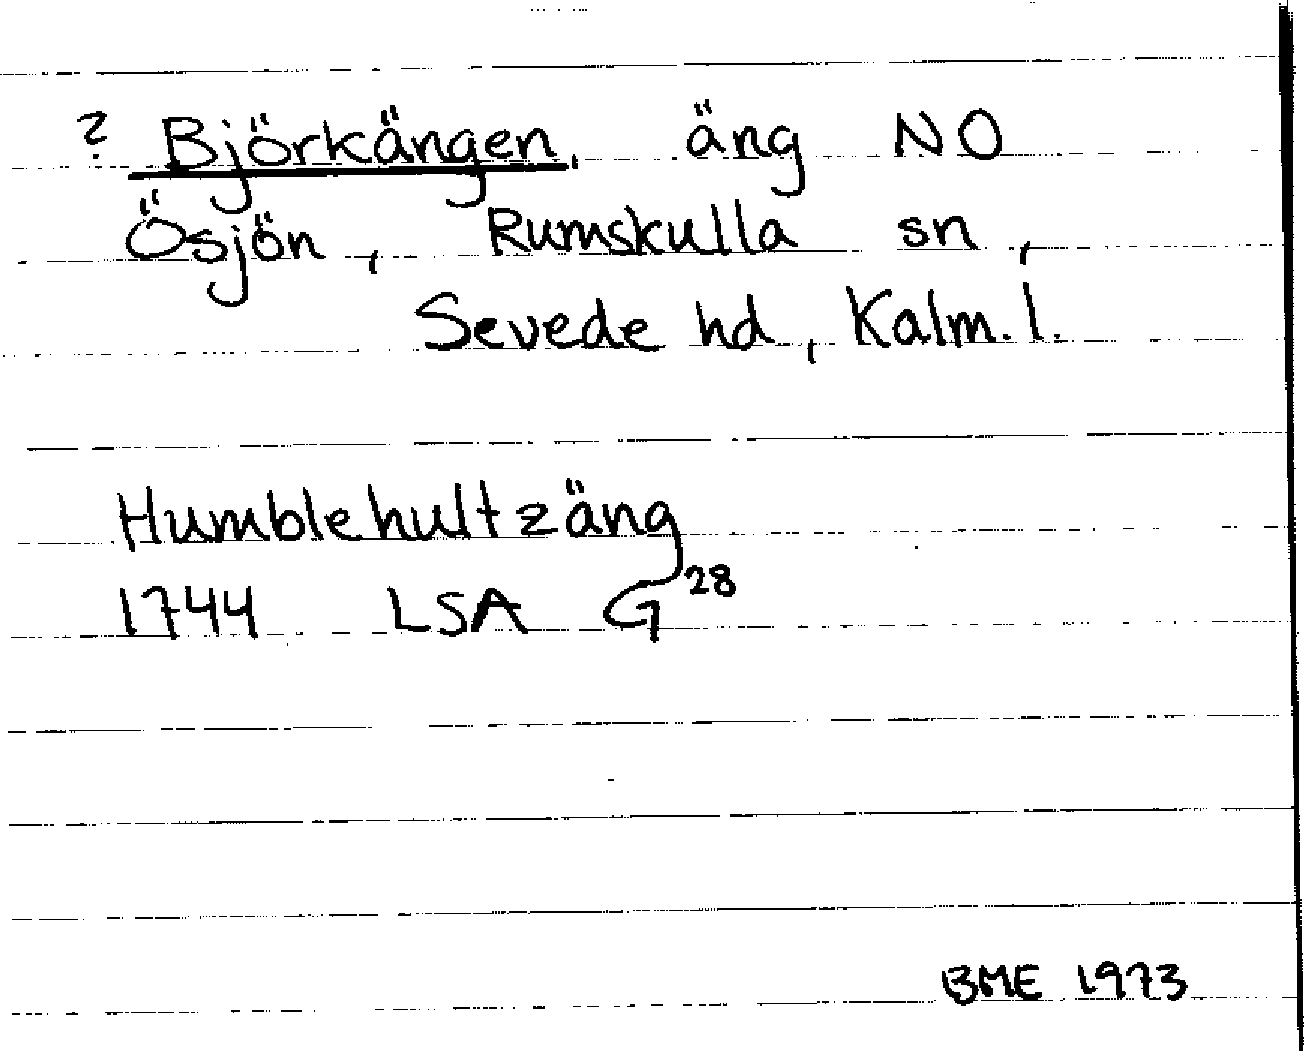 ? Björkängen, äng NO
Ösjön, Rumskulla sn,
Sevede hd, Kalm. l.
Humblehultzäng
1744 LSA G 28
BME 1973